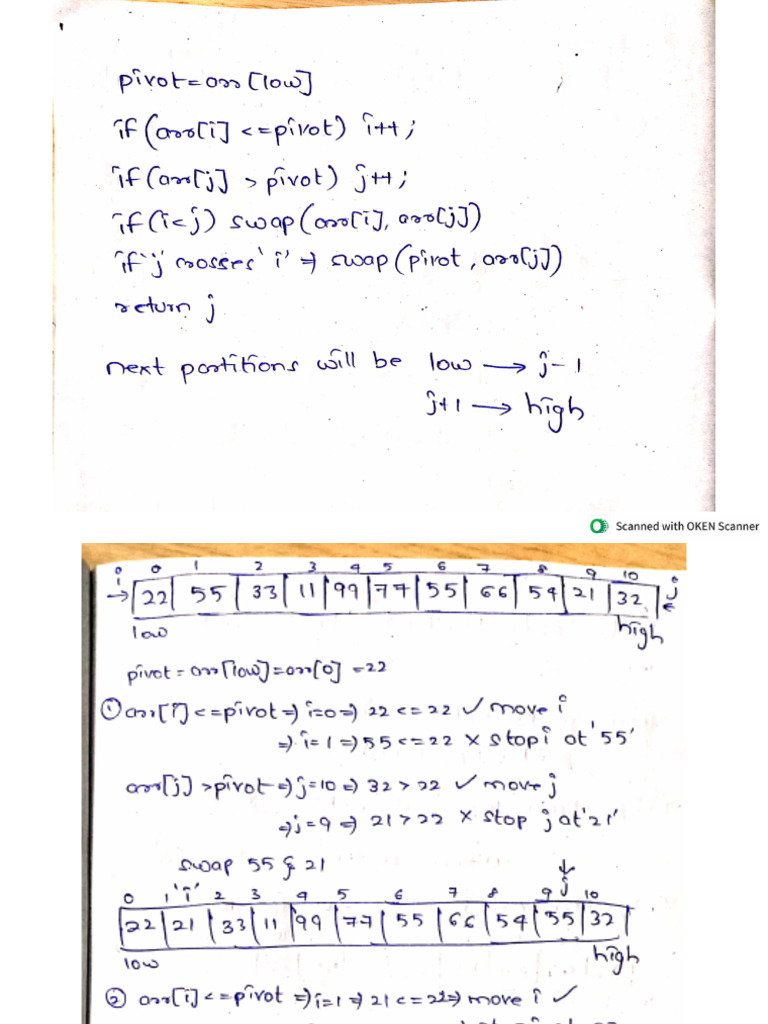 pivot=arr[low]
if(arr[i] <=pivot) i++;
if(arr[j] > pivot) j++;
if(i<j) swap(arr[i], arr[j])
if 'j' crosses 'i' ⇒ swap(pivot, arr[j])
return j
next partitions will be low → j-1
j+1 → high
Scanned with OKEN Scanner
i 0 1 2 3 4 5 6 7 8 9 10 j
→ 22 55 33 11 99 77 55 66 54 21 32 ←
low high
pivot = arr[low]=arr[0] =22
① arr[i]<=pivot⇒ i=0⇒ 22<=22 ✓ move i
⇒ i=1 ⇒ 55<=22 × stop i at '55'
arr[j] >pivot⇒ j=10⇒ 32>22 ✓ move j
⇒ j=9 ⇒ 21>22 × stop j at '21'
swap 55 & 21
0 1 'i' 2 3 4 5 6 7 8 9 j 10
22 21 33 11 99 77 55 66 54 55 32
low high
② arr[i]<=pivot ⇒ i=1⇒ 21<=22⇒ move i ✓